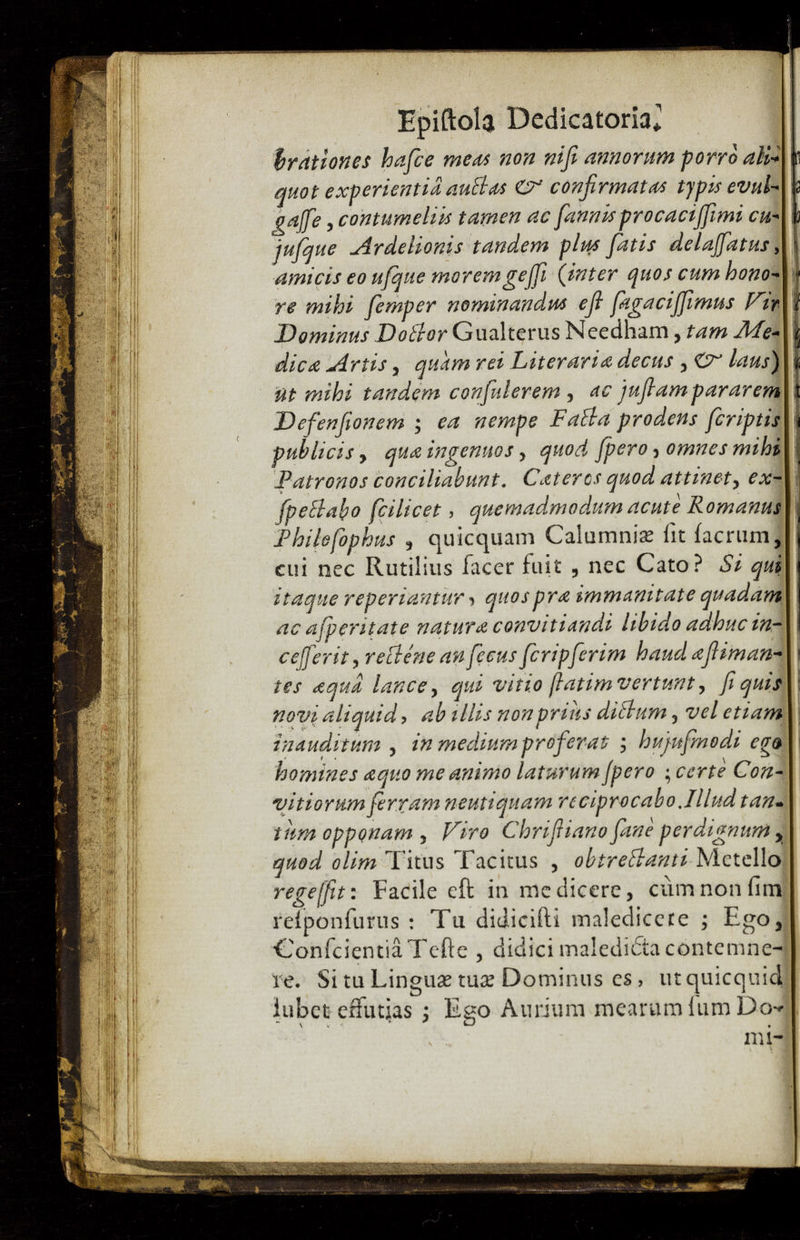 Epiſtola Dedicatoria.
brationes haſce meas non niſi annorum porro ali-
quot experientiâ auctas & confirmatas typis evul-
gaſſe, contumeliis tamen ac ſannis procaciſſimi cu-
juſque Ardelionis tandem plus ſatis delaſſatus,
amicis eo uſque morem geſſi (inter quos cum hono-
re mihi ſemper nominandus eſt ſagaciſſimus Vir
Dominus Doctor Gualterus Needham, tam Me-
dicæ Artis, quàm rei Literariæ decus, & laus)
ut mihi tandem conſulerem, ac juſtam pararem
Defenſionem; ea nempe Facta prodens ſcriptis
publicis, quæ ingenuos, quod ſpero, omnes mihi
Patronos conciliabunt. Cæteros quod attinet, ex-
ſpectabo ſcilicet, quemadmodum acutè Romanus
Philoſophus, quicquam Calumniæ ſit ſacrum,
cui nec Rutilius ſacer fuit, nec Cato? Si qui
itaque reperiantur, quos præ immanitate quadam
ac aſperitate naturæ convitiandi libido adhuc in-
ceſſerit, rectène an ſecus ſcripſerim haud æſtiman-
tes æquâ lance, qui vitio ſtatim vertunt, ſi quis
novi aliquid, ab illis non priùs dictum, vel etiam
inauditum, in medium proferat; hujuſmodi ego
homines æquo me animo laturum ſpero; certè Con-
vitiorum ſerram neutiquam reciprocabo. Illud tan-
tùm opponam, Viro Chriſtiano ſanè perdignum,
quod olim Titus Tacitus, obtrectanti Metello
regeſſit: Facile eſt in me dicere, cùm non ſim
reſponſurus: Tu didiciſti maledicere; Ego,
Conſcientiâ Teſte, didici maledicta contemne-
re. Si tu Linguæ tuæ Dominus es, ut quicquid
lubet effutias; Ego Aurium mearum ſum Do-
mi-